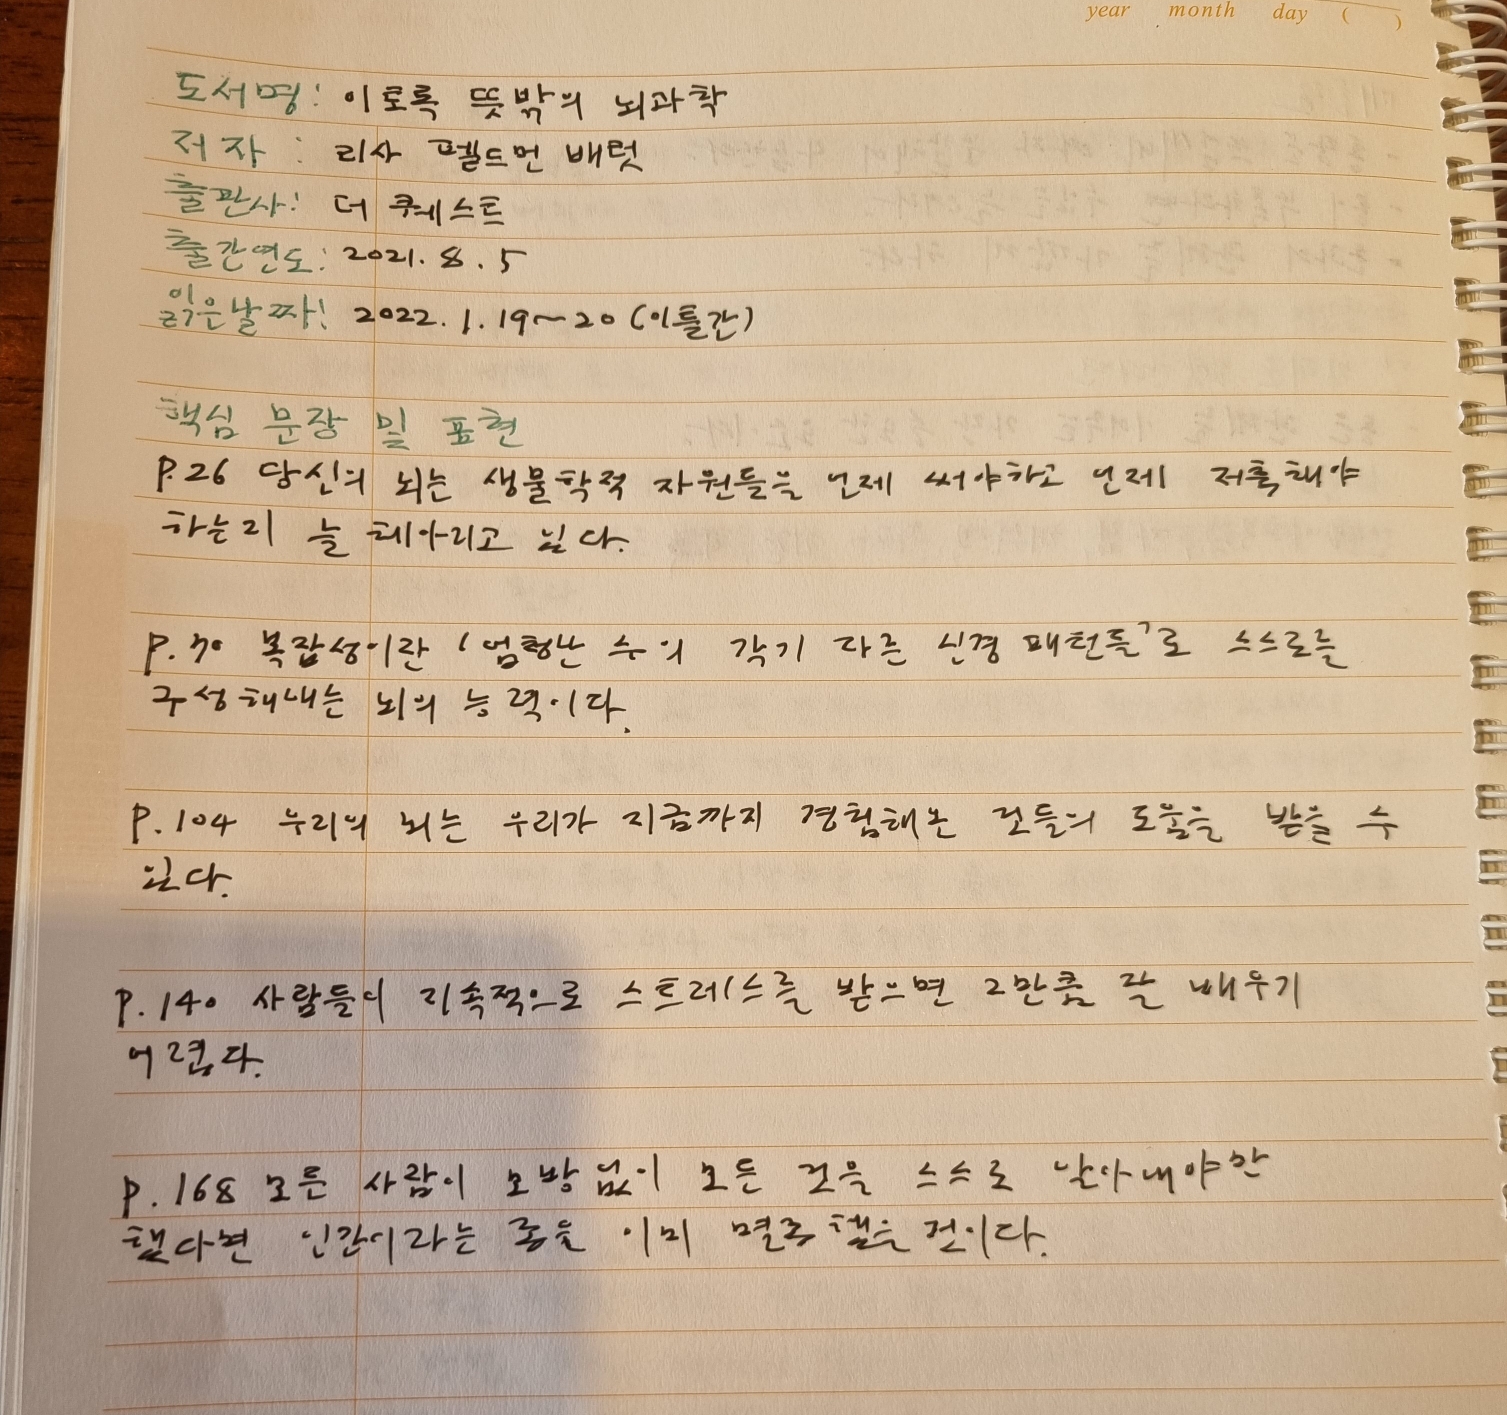 year month day ( )
도서명: 이토록 뜻밖의 뇌과학
저자 : 리사 펠드먼 배럿
출판사: 더 퀘스트
출간연도: 2021. 8. 5
읽은날짜: 2022. 1. 19~20 (이틀간)
핵심 문장 및 표현
P.26 당신의 뇌는 생물학적 자원들을 언제 써야하고 언제 저축해야
하는지 늘 헤아리고 있다.
P.70 복잡성이란 '엄청난 수의 각기 다른 신경 패턴들'로 스스로를
구성해내는 뇌의 능력이다.
P.104 우리의 뇌는 우리가 지금까지 경험해온 것들의 도움을 받을 수
있다.
P.140 사람들이 지속적으로 스트레스를 받으면 그만큼 잘 배우기
어렵다.
P.168 모든 사람이 모방 없이 모든 것을 스스로 알아내야만
했다면 인간이라는 종은 이미 멸종했을 것이다.